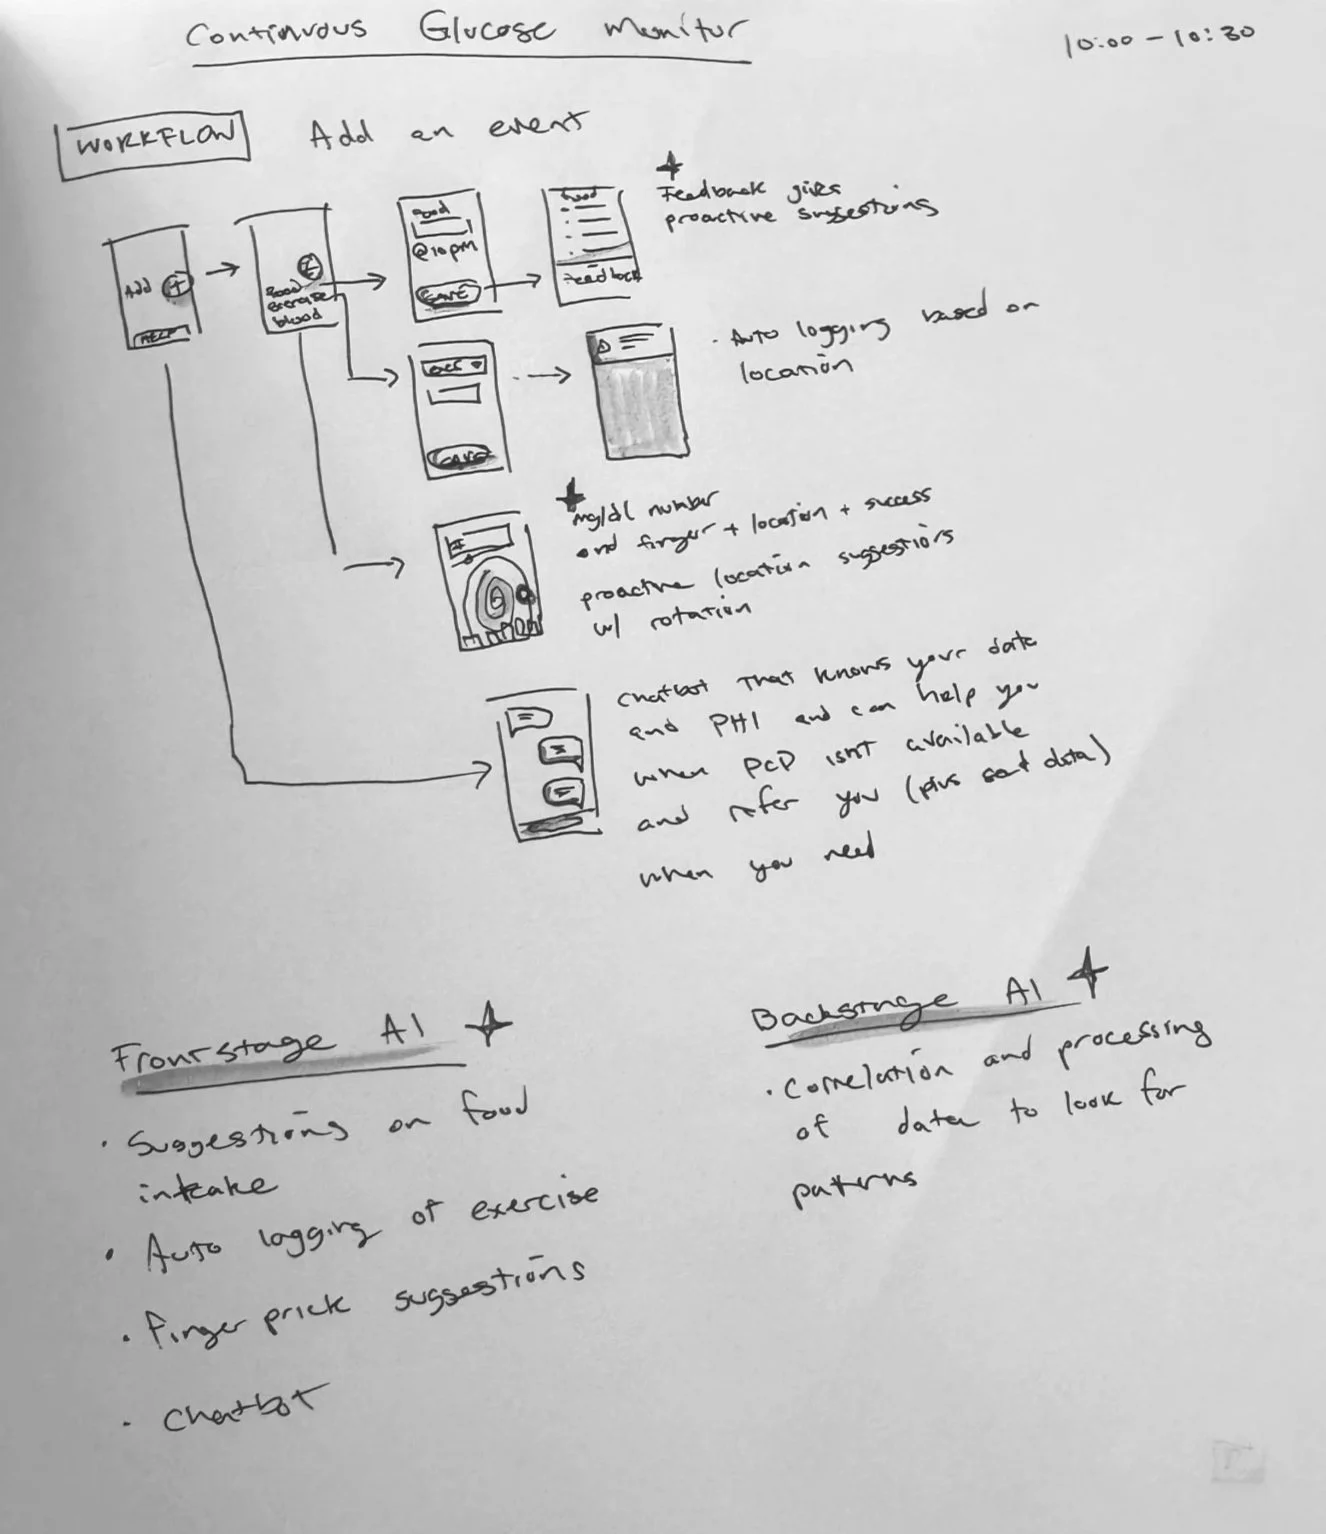 Continuous Glucose Monitor
10:00 - 10:30
WORKFLOW
Add an event
Add +
HELP
food
exercise
blood
food
@10pm
SAVE
food
Feedback
Feedback gives
proactive suggestions
SAVE
· Auto logging based on
location
#
mg/dl number
and finger + location + success
proactive location suggestions
w/ rotation
chatbot that knows your data
and PHI and can help you
when PCP isn't available
and refer you (plus send data)
when you need
Frontstage AI
· Suggestions on food
intake
· Auto logging of exercise
· Finger prick suggestions
· Chatbot
Backstage AI
· Correlation and processing
of data to look for
patterns